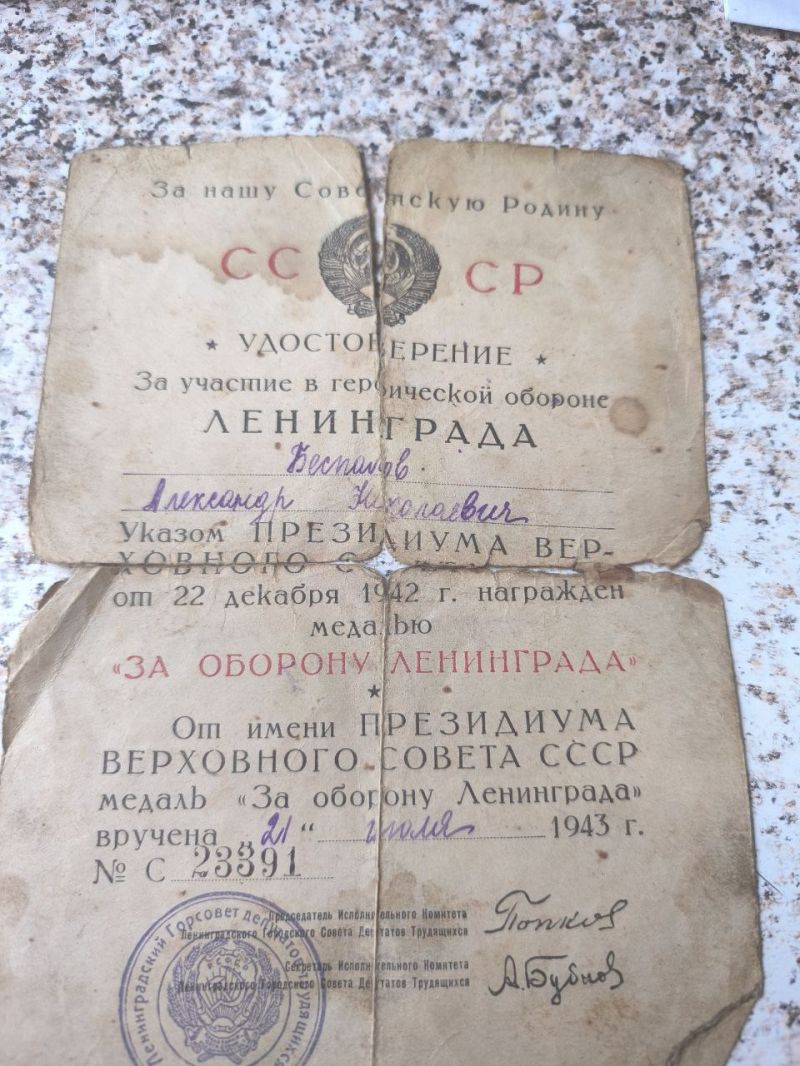 За нашу Советскую Родину
СССР
УДОСТОВЕРЕНИЕ
За участие в героической обороне
ЛЕНИНГРАДА
Беспалов
Александр Николаевич
Указом ПРЕЗИДИУМА ВЕР-
ХОВНОГО С
от 22 декабря 1942 г. награжден
медалью
«ЗА ОБОРОНУ ЛЕНИНГРАДА»
От имени ПРЕЗИДИУМА
ВЕРХОВНОГО СОВЕТА СССР
медаль «За оборону Ленинграда»
вручена „21“ июля 1943 г.
№ С 23391
Председатель Исполнительного Комитета
Ленинградского Городского Совета Депутатов Трудящихся
Попков
Секретарь Исполнительного Комитета
Ленинградского Городского Совета Депутатов Трудящихся
А.Бубнов
Ленинградский Горсовет депутатов трудящихся
РСФСР